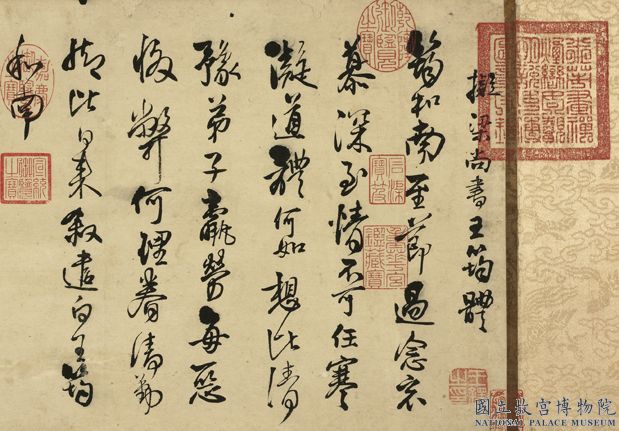 擬梁尚書王筠體
筠和南至節過念哀
慕深至情不可任寒
凝道體何如想比清
豫弟子羸勞每惡
弊何理眷清勤
比日來敘遣白王筠
和南
國立故宮博物院
NATIONAL PALACE MUSEUM